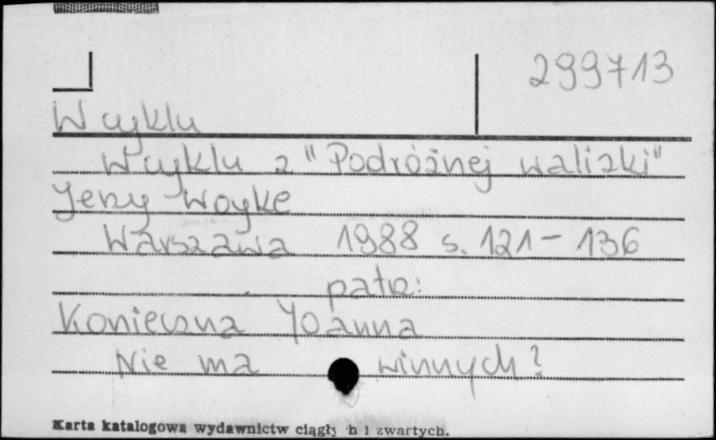 299713
W cyklu
W cyklu z "Podróżnej walizki"
Jerzy Woyke
Warszawa 1988 s. 121-136
patrz:
Konieczna Joanna
Nie ma winnych?
Karta katalogowa wydawnictw ciągły h i zwartych.